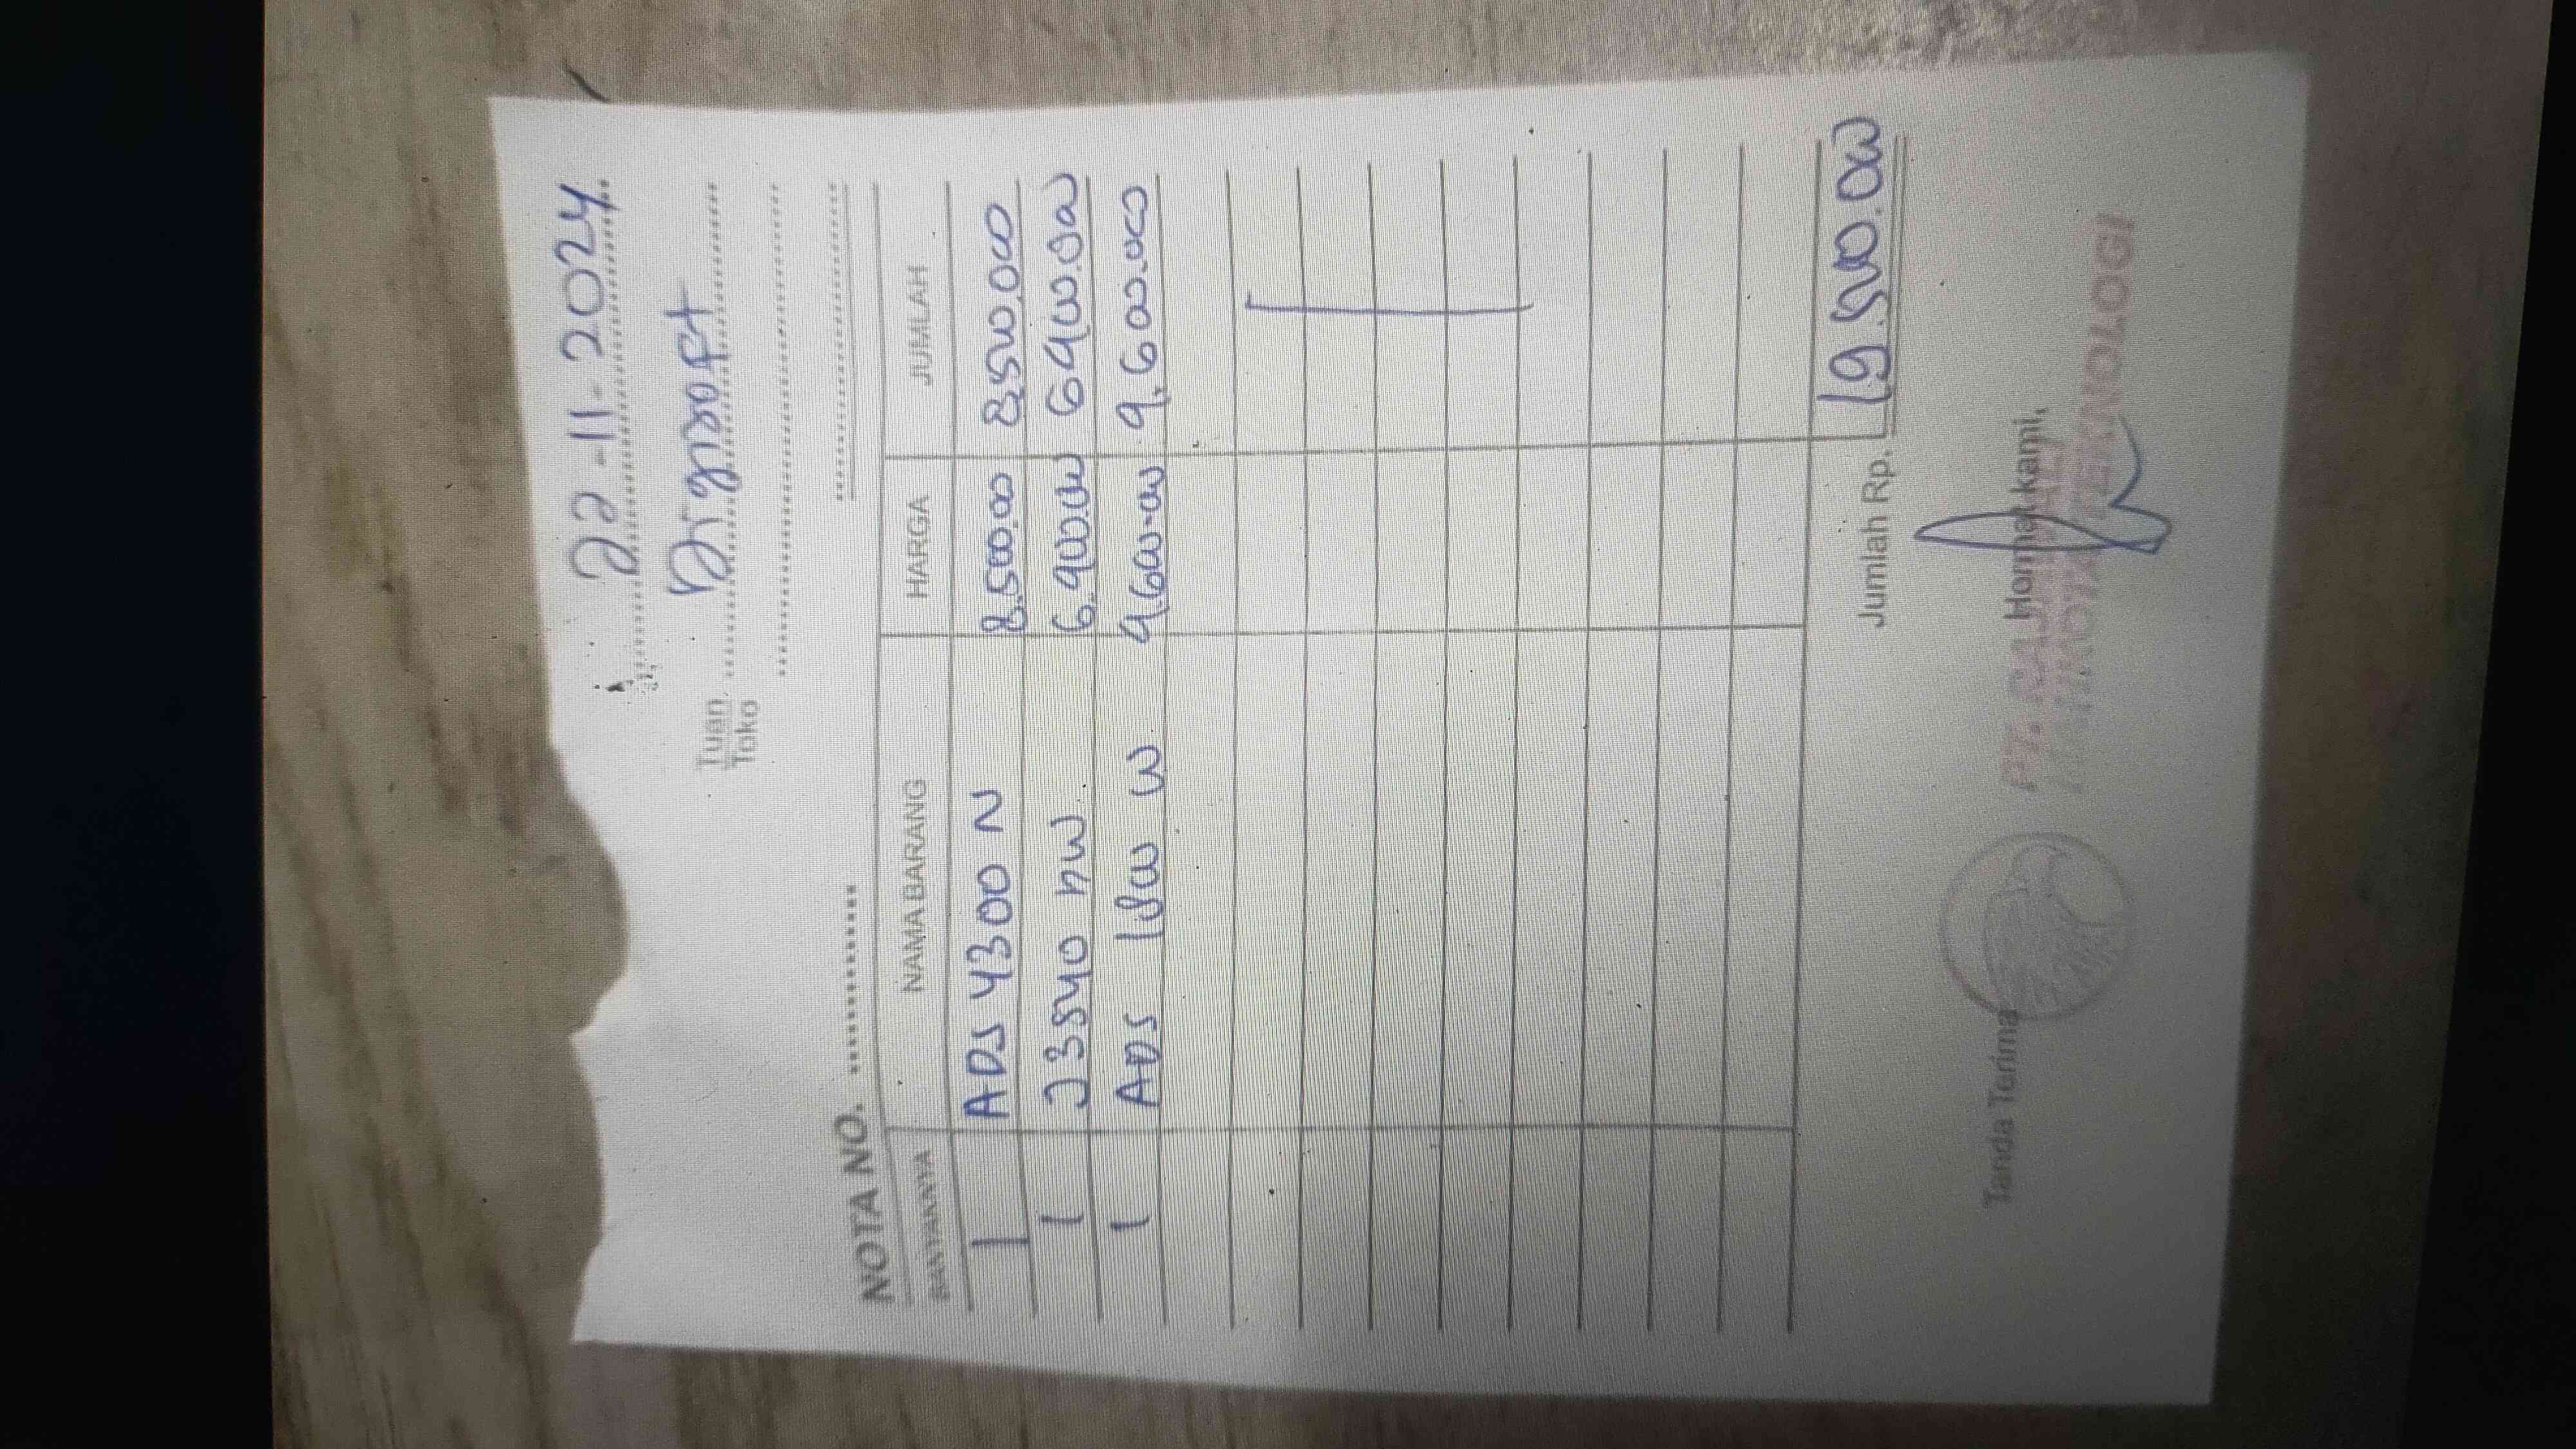 22-11-2024
Tuan
Toko
Digisoft
NOTA NO.
BANYAKNYA NAMA BARANG HARGA JUMLAH
1 ADS 4300 N 8.500.00 8.500.000
1 J 3540 DW 6.900.000 6.900.000
1 ADS 1800 W 9.600.000 9.600.000
Jumlah Rp. 19.500.000
Tanda Terima Hormat kami,
PT.
TEKNOLOGI